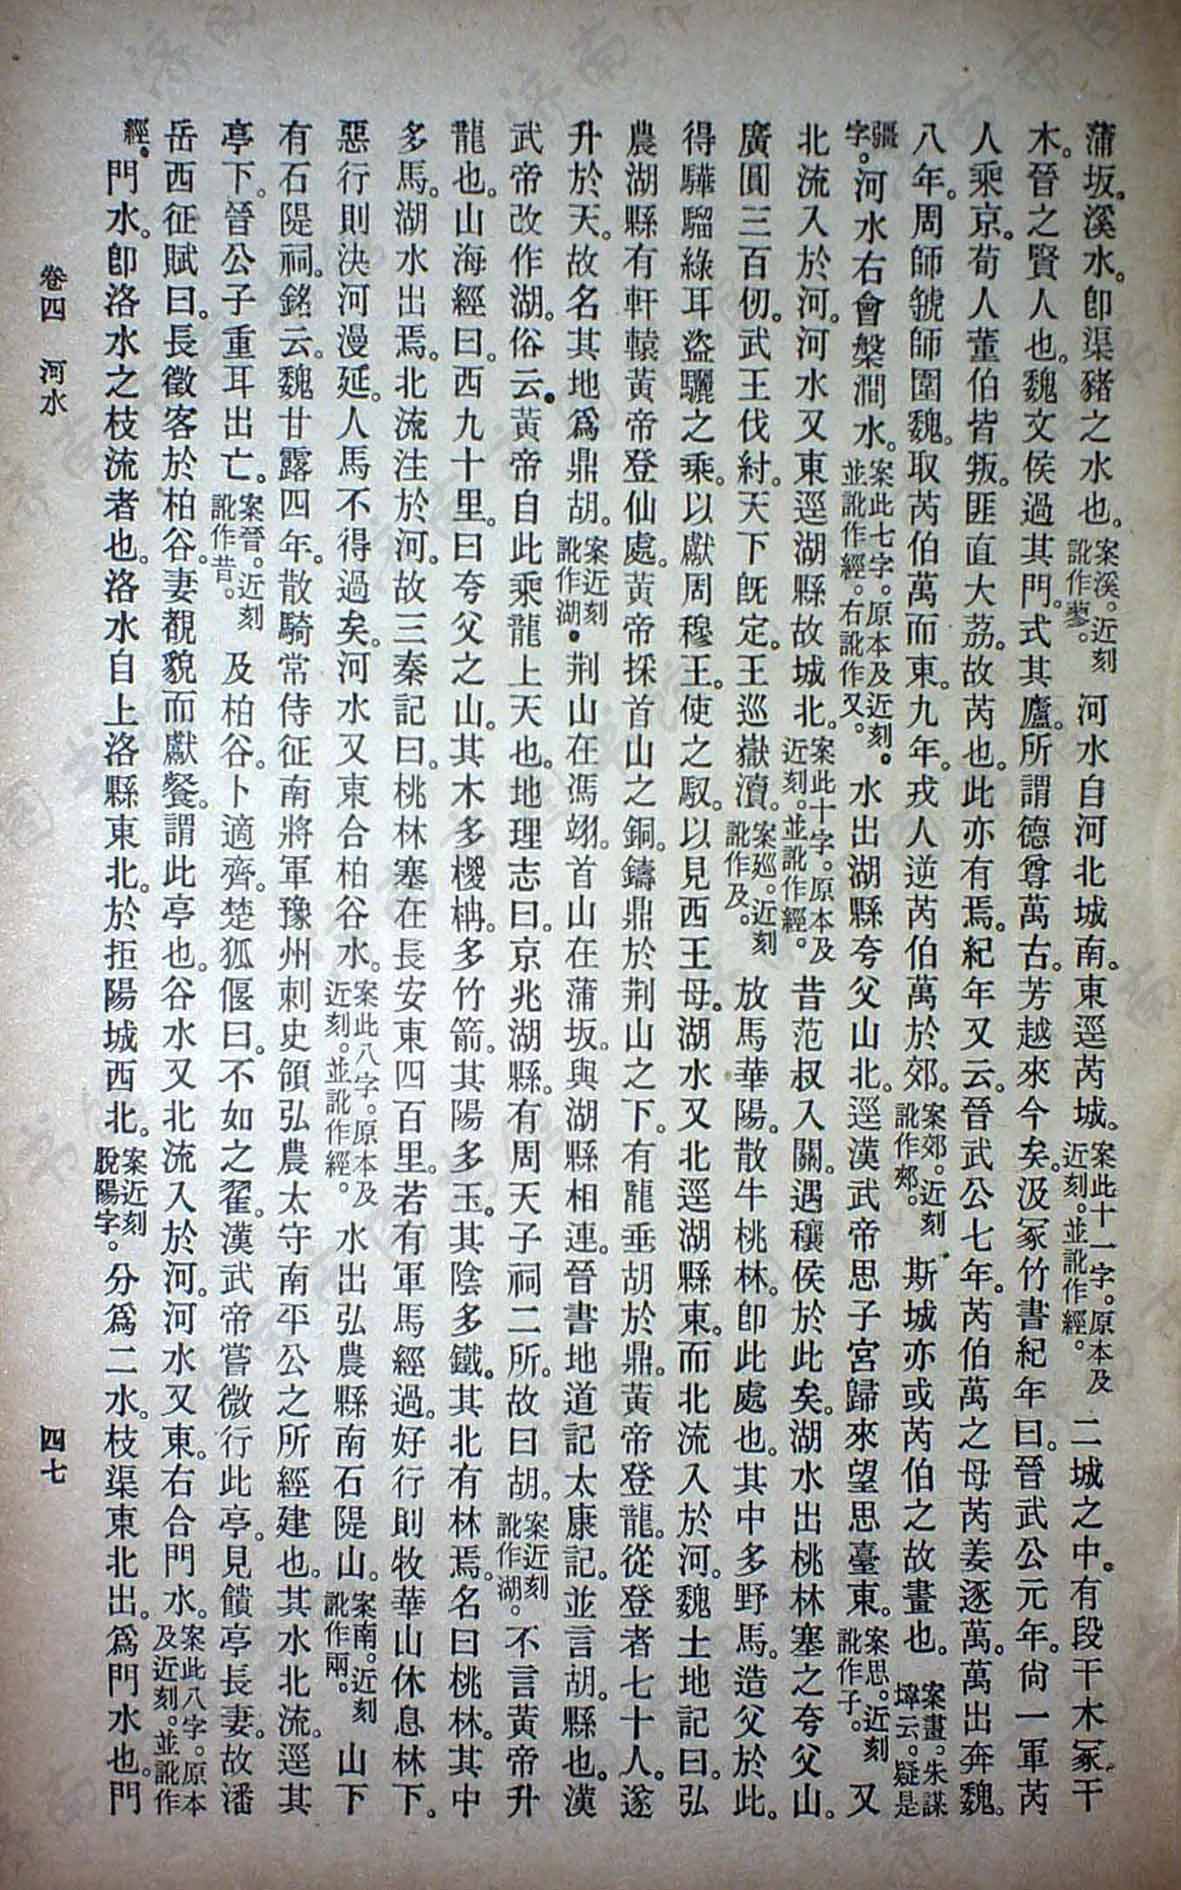 蒲坂。溪水。卽渠豬之水也。案溪。近刻訛作蓼。河水自河北城南。東逕芮城。案此十一字。原本及近刻。並訛作經。二城之中。有段干木冢。干
木。晉之賢人也。魏文侯過其門。式其廬。所謂德尊萬古。芳越來今矣。汲冢竹書紀年曰。晉武公元年。尙一軍芮
人乘京。荀人董伯皆叛。匪直大荔。故芮也。此亦有焉。紀年又云。晉武公七年。芮伯萬之母芮姜逐萬。萬出奔魏。
八年。周師虢師圍魏。取芮伯萬而東。九年。戎人逆芮伯萬於郊。案郊。近刻訛作郟。斯城亦或芮伯之故畫也。案畫。朱謀㙔云。疑是
疆字。河水右會槃澗水。案此七字。原本及近刻。並訛作經。右訛作又。水出湖縣夸父山北。逕漢武帝思子宮歸來望思臺東。案思。近刻訛作子。又
北流入於河。河水又東逕湖縣故城北。案此十字。原本及近刻。並訛作經。昔范叔入關。遇穰侯於此矣。湖水出桃林塞之夸父山。
廣圓三百仞。武王伐紂。天下旣定。王巡嶽瀆。案巡。近刻訛作及。放馬華陽。散牛桃林。卽此處也。其中多野馬。造父於此。
得驊騮綠耳盜驪之乘。以獻周穆王。使之馭。以見西王母。湖水又北逕湖縣東。而北流入於河。魏土地記曰。弘
農湖縣有軒轅黃帝登仙處。黃帝採首山之銅。鑄鼎於荆山之下。有龍垂胡於鼎。黃帝登龍。從登者七十人。遂
升於天。故名其地爲鼎胡。案近刻訛作湖。荆山在馮翊。首山在蒲坂。與湖縣相連。晉書地道記太康記。並言胡縣也。漢
武帝改作湖。俗云。黃帝自此乘龍上天也。地理志曰。京兆湖縣。有周天子祠二所。故曰胡。案近刻訛作湖。不言黃帝升
龍也。山海經曰。西九十里。曰夸父之山。其木多椶柟。多竹箭。其陽多玉。其陰多鐵。其北有林焉。名曰桃林。其中
多馬。湖水出焉。北流注於河。故三秦記曰。桃林塞在長安東四百里。若有軍馬經過。好行則牧華山休息林下。
惡行則決河漫延。人馬不得過矣。河水又東合柏谷水。案此八字。原本及近刻。並訛作經。水出弘農縣南石隄山。案南。近刻訛作兩。山下
有石隄祠。銘云。魏甘露四年。散騎常侍征南將軍豫州刺史領弘農太守南平公之所經建也。其水北流。逕其
亭下。晉公子重耳出亡。案晉。近刻訛作昔。及柏谷。卜適齊。楚狐偃曰。不如之翟。漢武帝嘗微行此亭。見饋亭長妻。故潘
岳西征賦曰。長徵客於柏谷。妻覩貌而獻餐。謂此亭也。谷水又北流入於河。河水又東。右合門水。案此八字。原本及近刻。並訛作
經。門水。卽洛水之枝流者也。洛水自上洛縣東北。於拒陽城西北。案近刻脫陽字。分爲二水。枝渠東北出。爲門水也。門
卷四 河水
四七